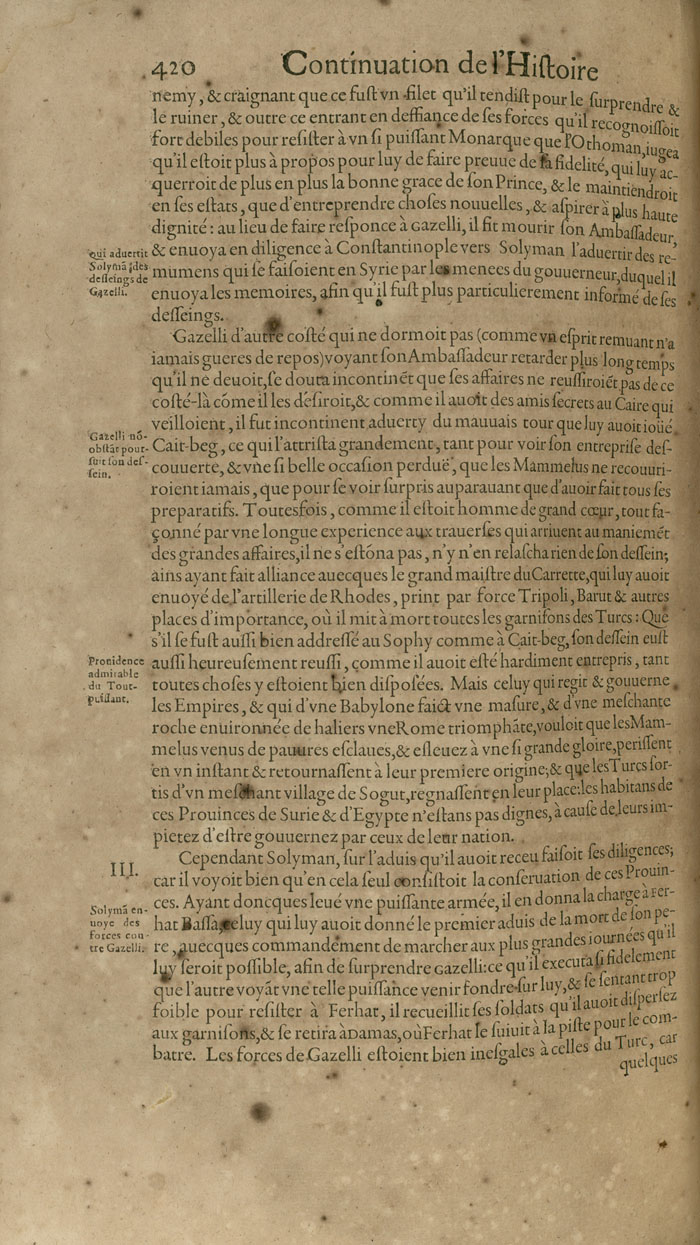 420 Continuation de l'Histoire
nemy, & craignant que ce fust vn filet qu'il tendist pour le surprendre &
le ruiner, & outre ce entrant en deffiance de ses forces qu'il recognoissoit
fort debiles pour resister à vn si puissant Monarque que l'Othoman, iugea
qu'il estoit plus à propos pour luy de faire preuue de sa fidelité, qui luy ac-
querroit de plus en plus la bonne grace de son Prince, & le maintiendroit
en ses estats, que d'entreprendre choses nouuelles, & aspirer à plus haute
dignité: au lieu de faire response à Gazelli, il fit mourir son Ambassadeur,
qui aduertit
Solymã des
desseings de
Gazelli.
& enuoya en diligence à Constantinople vers Solyman l'aduertir des re-
mumens qui se faisoient en Syrie par les menees du gouuerneur, duquel il
enuoya les memoires, afin qu'il fust plus particulierement informé de ses
desseings.
Gazelli d'autre costé qui ne dormoit pas (comme vn esprit remuant n'a
iamais gueres de repos) voyant son Ambassadeur retarder plus long temps
qu'il ne deuoit, se douta incontinét que ses affaires ne reussiroiét pas de ce
costé-là cóme il les desiroit, & comme il auoit des amis secrets au Caire qui
veilloient, il fut incontinent aduerty du mauuais tour que luy auoit ioüé
Gazelli nó-
obstãt pour-
suit son des-
sein.
Cait-beg, ce qui l'attrista grandement, tant pour voir son entreprise des-
couuerte, & vne si belle occasion perduë, que les Mammelus ne recouuri-
roient iamais, que pour se voir surpris auparauant que d'auoir fait tous ses
preparatifs. Toutesfois, comme il estoit homme de grand cœur, tout fa-
çonné par vne longue experience aux trauerses qui arriuent au maniemét
des grandes affaires, il ne s'estóna pas, n'y n'en relascha rien de son dessein;
ains ayant fait alliance auecques le grand maistre du Carrette, qui luy auoit
enuoyé de l'artillerie de Rhodes, print par force Tripoli, Barut & autres
places d'importance, où il mit à mort toutes les garnisons des Turcs: Que
s'il se fust aussi bien addressé au Sophy comme à Cait-beg, son dessein eust
Prouidence
admirable
du Tout-
puissant.
aussi heureusement reussi, comme il auoit esté hardiment entrepris, tant
toutes choses y estoient bien disposées. Mais celuy qui regit & gouuerne
les Empires, & qui d'vne Babylone faict vne masure, & d'vne meschante
roche enuironnée de haliers vne Rome triomphãte, vouloit que les Mam-
melus venus de pauures esclaues, & esleuez à vne si grande gloire, perissent
en vn instant & retournassent à leur premiere origine; & que les Turcs sor-
tis d'vn meschant village de Sogut, regnassent en leur place: les habitans de
ces Prouinces de Surie & d'Egypte n'estans pas dignes, à cause de leurs im-
pietez d'estre gouuernez par ceux de leur nation.
III.
Cependant Solyman, sur l'aduis qu'il auoit receu faisoit ses diligences;
car il voyoit bien qu'en cela seul consistoit la conseruation de ces Prouin-
Solymã en-
uoye des
forces con-
tre Gazelli.
ces. Ayant doncques leué vne puissante armée, il en donna la charge à Fer-
hat Bassa, celuy qui luy auoit donné le premier aduis de la mort de son pe-
re, auecques commandement de marcher aux plus grandes iournées qu'il
luy seroit possible, afin de surprendre Gazelli: ce qu'il executa si fidelement
que l'autre voyãt vne telle puissance venir fondre sur luy, & se sentant trop
foible pour resister à Ferhat, il recueillit ses soldats qu'il auoit dispersez
aux garnisons, & se retira à Damas, où Ferhat le suiuit à la piste pour le com-
batre. Les forces de Gazelli estoient bien inesgales à celles du Turc, car
quelques